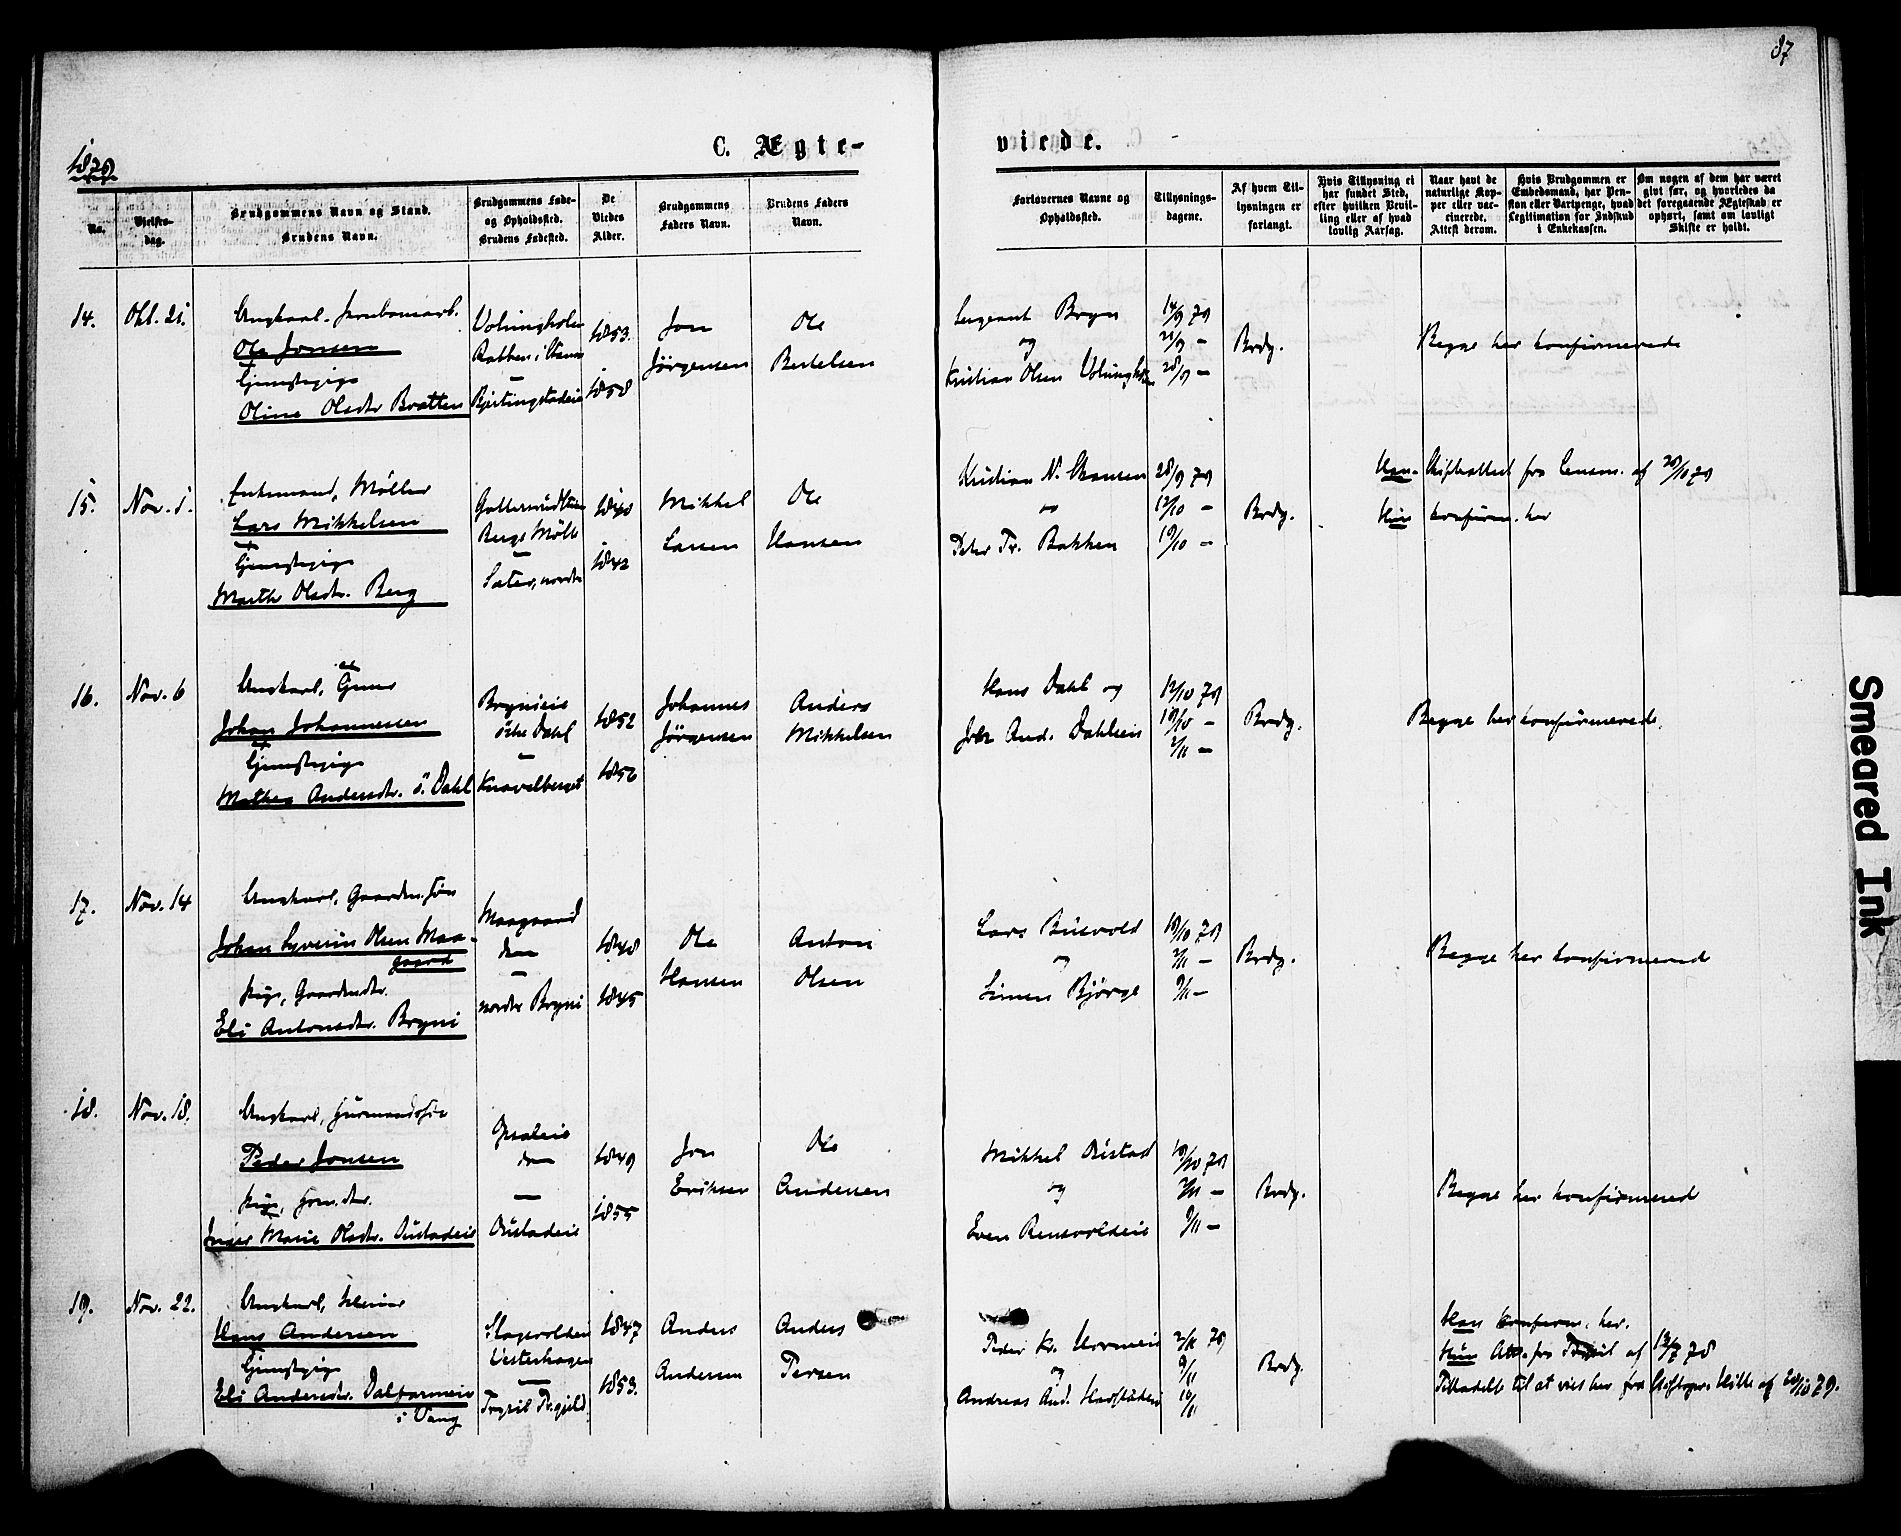 87
1879.
C. Ægte-
viede.
No.
Vielses-
dag.
Brudgommens Navn og Stand.
Brudens Navn.
Brudgommens Føde-
og Opholdssted.
Brudens Fødested.
De
Viedes
Alder.
Brudgommens
Faders Navn.
Brudens Faders
Navn.
Forlovernes Navne og
Opholdssted.
Tillysnings-
dagene.
Af hvem Til-
lysningen er
forlangt.
Hvis Tillysning ei
har fundet Sted,
efter hvilken Bevil-
ling eller af hvad
lovlig Aarsag.
Naar havt de
naturlige Kop-
per eller vac-
cinerede.
Attest derom.
Hvis Brudgommen er
Embedsmand, har Pen-
sion eller Vartpenge, hvad
Legitimation for Indskud
i Enkekassen.
Om nogen af dem har været
givt før, og hvorledes da
det foregaaende Ægteskab er
ophørt, samt om lovligt
Skifte er holdt.
14.
Okt. 21.
Ungkarl.
Ole Jonsen
Oline Olsdtr Bratten
1853.
1858
Jon
Jörgensen
Ole
Bertelsen
Sergeant Bryn
og
Kristian Olsen
14/9 79
21/9 -
28/9 -
Brdg.
Begge her konfirmerede
15.
Nov. 1.
Enkemand, Möller
Lars Mikkelsen
Marthe Olsdtr. Berg
Bergs Mölle
Sæter, nordre
1840
1842
Mikkel
Larsen
Ole
Hansen
Kristian N. Skansen
Peter Tr. Bakken
28/9 79
12/10 -
19/10 -
Brdg.
Han Skifteattest fra af 20/10 79
Hun konfirm. her
16.
Nov. 6
Ungkarl,
Johan Johannessen
Mathea Andersdtr. ö. Dahl
Brynieie
östre Dahl
Knavelberget
1852
1852
Johannes
Jörgensen
Anders
Mikkelsen
Hans Dahl og
Joh. And. Dahlseie
12/10 79
19/10 -
2/11 -
Brdg.
Begge her konfirmerede.
17.
Nov. 14
Ungkarl, Gaardm. sön
Johan Syverin Olsen Maa-
gaard
Pige, Gaardmdtr.
Eli Antonsdtr. Bryni
Maagaard
dem
nordre Bryni
1848
1845
Ole
Hansen
Anton
Olsen
Lars
og
Simen Björge
19/10 79
2/11 -
9/11 -
Brdg.
Begge her konfirmerede
18.
Nov. 18.
Ungkarl, Husmandssön
Peder Jonsen
Pige, Hsm. dtr.
Inger Marie Olsdtr. Öustadeie
Opsaleie
dem
Öustadeie
1849
1855
Jon
Eriksen
Ole
Andersen
Mikkel Öustad
og
Even
19/10 79
2/11 -
9/11 -
Brdg.
Begge her konfirmered
19.
Nov. 22.
Ungkarl,
Hans Andersen
Eli Andersdtr. Dalfarmeie
i Vang
Vesterhagen
Trysil Pr.gjeld
1847
1853.
Anders
Andersen
Anders
Persen
Peder Kr.
og
Andreas And.
2/11 79
9/11
16/11
Brdg.
Han konfirm. her.
Hun Att. fra Trysil af 13/7 78
Tilladelse til at vies her fra af 20/10 79.
Smeared Ink